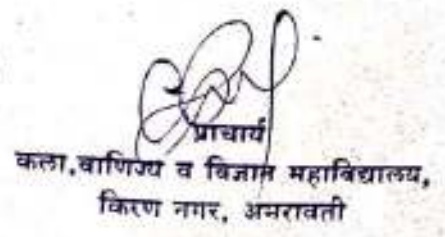 प्राचार्य
कला,वाणिज्य व विज्ञान महाविद्यालय,
किरण नगर, अमरावती